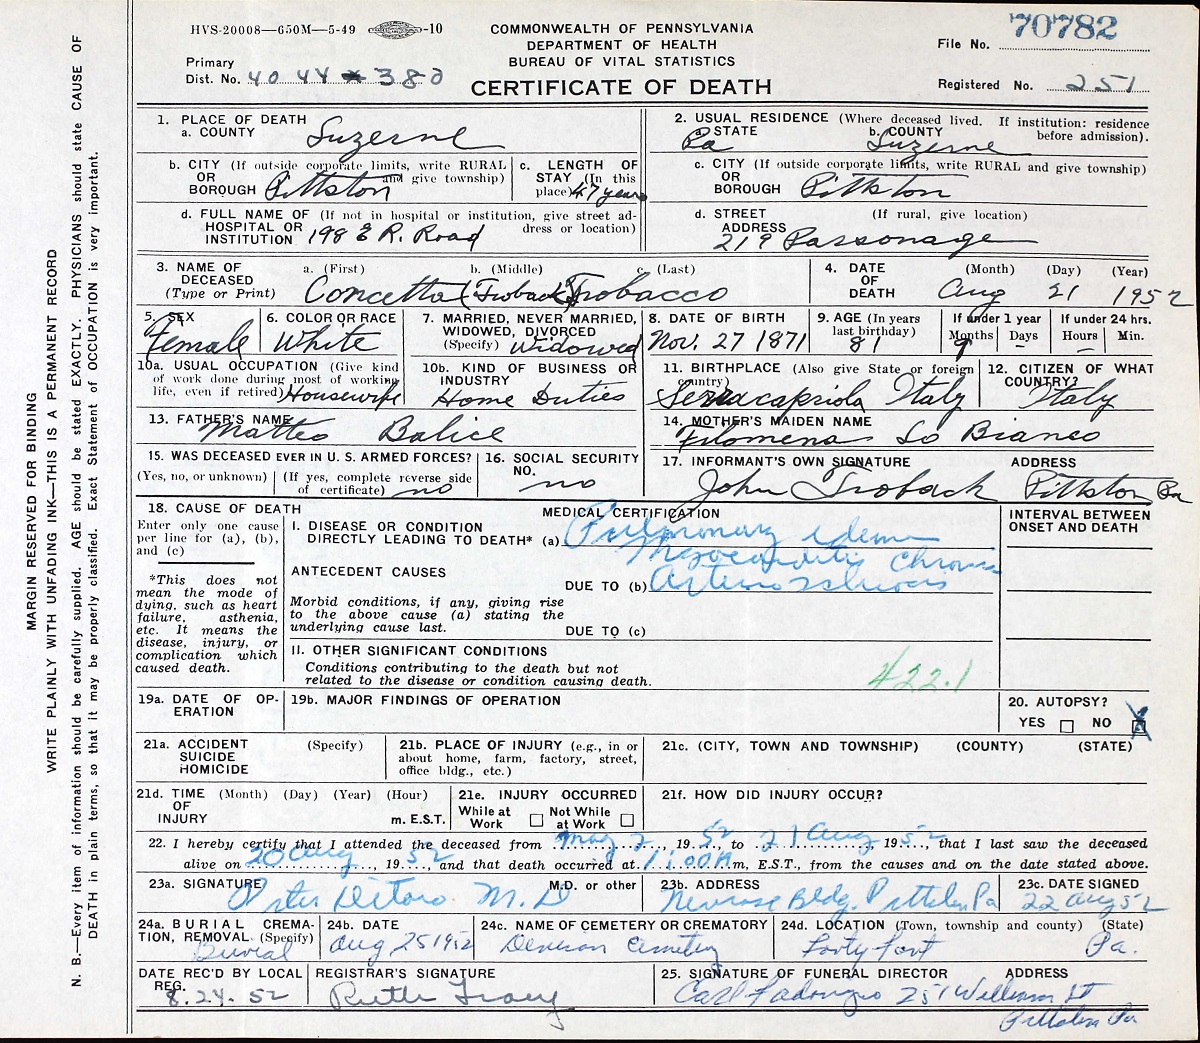 HVS-20008—650M—5-49 -10
COMMONWEALTH OF PENNSYLVANIA
DEPARTMENT OF HEALTH
BUREAU OF VITAL STATISTICS
CERTIFICATE OF DEATH
Primary
Dist. No. 4044 380
File No. 70782
Registered No. 251
MARGIN RESERVED FOR BINDING
WRITE PLAINLY WITH UNFADING INK—THIS IS A PERMANENT RECORD
N. B.—Every item of information should be carefully supplied. AGE should be stated EXACTLY. PHYSICIANS should state CAUSE OF
DEATH in plain terms, so that it may be properly classified. Exact Statement of OCCUPATION is very important.
1. PLACE OF DEATH
a. COUNTY Luzerne
2. USUAL RESIDENCE (Where deceased lived. If institution: residence before admission).
a. STATE Pa b. COUNTY Luzerne
b. CITY (If outside corporate limits, write RURAL
OR and give township)
BOROUGH Pittston
c. LENGTH OF
STAY (In this
place) 47 years
c. CITY (If outside corporate limits, write RURAL and give township)
OR
BOROUGH Pittston
d. FULL NAME OF (If not in hospital or institution, give street ad-
HOSPITAL OR dress or location)
INSTITUTION 198 E R. Road
d. STREET (If rural, give location)
ADDRESS
219 Parsonage
3. NAME OF DECEASED (Type or Print)
a. (First) b. (Middle) c. (Last)
Concetta (Troback) Trobacco
4. DATE OF DEATH
(Month) (Day) (Year)
Aug 21 1952
5. SEX
Female
6. COLOR OR RACE
White
7. MARRIED, NEVER MARRIED,
WIDOWED, DIVORCED
(Specify) Widowed
8. DATE OF BIRTH
Nov. 27 1871
9. AGE (In years
last birthday)
81
If under 1 year
Months Days
9 –
If under 24 hrs.
Hours Min.
–
10a. USUAL OCCUPATION (Give kind
of work done during most of working
life, even if retired) Housewife
10b. KIND OF BUSINESS OR
INDUSTRY
Home Duties
11. BIRTHPLACE (Also give State or foreign
country)
Serracapriola Italy
12. CITIZEN OF WHAT
COUNTRY?
Italy
13. FATHER'S NAME
Matteo Balice
14. MOTHER'S MAIDEN NAME
Filomena Lo Bianco
15. WAS DECEASED EVER IN U. S. ARMED FORCES?
(Yes, no, or unknown) (If yes, complete reverse side
of certificate) no
16. SOCIAL SECURITY
NO.
no
17. INFORMANT'S OWN SIGNATURE ADDRESS
John Troback Pittston Pa
18. CAUSE OF DEATH
Enter only one cause
per line for (a), (b),
and (c)
*This does not
mean the mode of
dying, such as heart
failure, asthenia,
etc. It means the
disease, injury, or
complication which
caused death.
MEDICAL CERTIFICATION
I. DISEASE OR CONDITION
DIRECTLY LEADING TO DEATH* (a) Pulmonary edema
Myocarditis Chronic
ANTECEDENT CAUSES
DUE TO (b) Arteriosclerosis
Morbid conditions, if any, giving rise
to the above cause (a) stating the
underlying cause last.
DUE TO (c)
II. OTHER SIGNIFICANT CONDITIONS
Conditions contributing to the death but not
related to the disease or condition causing death.
422.1
INTERVAL BETWEEN
ONSET AND DEATH
19a. DATE OF OP-
ERATION
19b. MAJOR FINDINGS OF OPERATION
20. AUTOPSY?
YES NO X
21a. ACCIDENT (Specify)
SUICIDE
HOMICIDE
21b. PLACE OF INJURY (e.g., in or
about home, farm, factory, street,
office bldg., etc.)
21c. (CITY, TOWN AND TOWNSHIP) (COUNTY) (STATE)
21d. TIME (Month) (Day) (Year) (Hour)
OF
INJURY m. E.S.T.
21e. INJURY OCCURRED
While at Work Not While at Work
21f. HOW DID INJURY OCCUR?
22. I hereby certify that I attended the deceased from May 2, 1952, to 21 Aug 1952, that I last saw the deceased
alive on 20 Aug, 1952, and that death occurred at 1:00A m, E.S.T., from the causes and on the date stated above.
23a. SIGNATURE M.D. or other
Peter DeToro M.D
23b. ADDRESS
Newrose Bldg. Pittston Pa
23c. DATE SIGNED
22 Aug 52
24a. BURIAL CREMA-
TION, REMOVAL (Specify)
Burial
24b. DATE
Aug 25 1952
24c. NAME OF CEMETERY OR CREMATORY
Denison Cemetery
24d. LOCATION (Town, township and county) (State)
Forty Fort Pa.
DATE REC'D BY LOCAL
REG.
8.24.52
REGISTRAR'S SIGNATURE
Ruth Tracy
25. SIGNATURE OF FUNERAL DIRECTOR ADDRESS
Carl Adonizio 251 William St
Pittston Pa